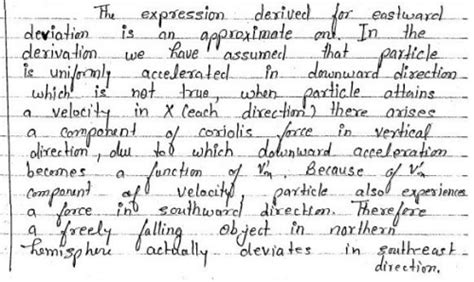 The expression derived for eastward
deviation is an approximate one. In the
derivation we have assumed that particle
is uniformly accelerated in downward direction
which is not true, when particle attains
a velocity in X (each direction) there arises
a component of coriolis force in vertical
direction, due to which downward acceleration
becomes a function of V'x. Because of V'x
component of velocity, particle also experience
a force in southward direction. Therefore
a freely falling object in northern
hemisphere actually deviates in south-east
direction.